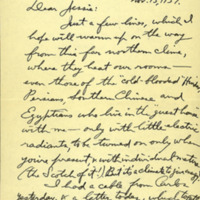 Nov. 13, 1957.
Dear Jessie:
Just a few lines, which I
hope will warm up on the way
from this far northern clime,
where they heat our rooms —
even those of the "cold-blooded" Hindus,
Persians, Southern Chinese and
Egyptians who live in the guest house
with me — only with little electric
radiants, to be turned on only when
you're present & with individual meters.
(The Scots of it!) But its climate is
I had a cable from Carlos
yesterday, & a letter today, which